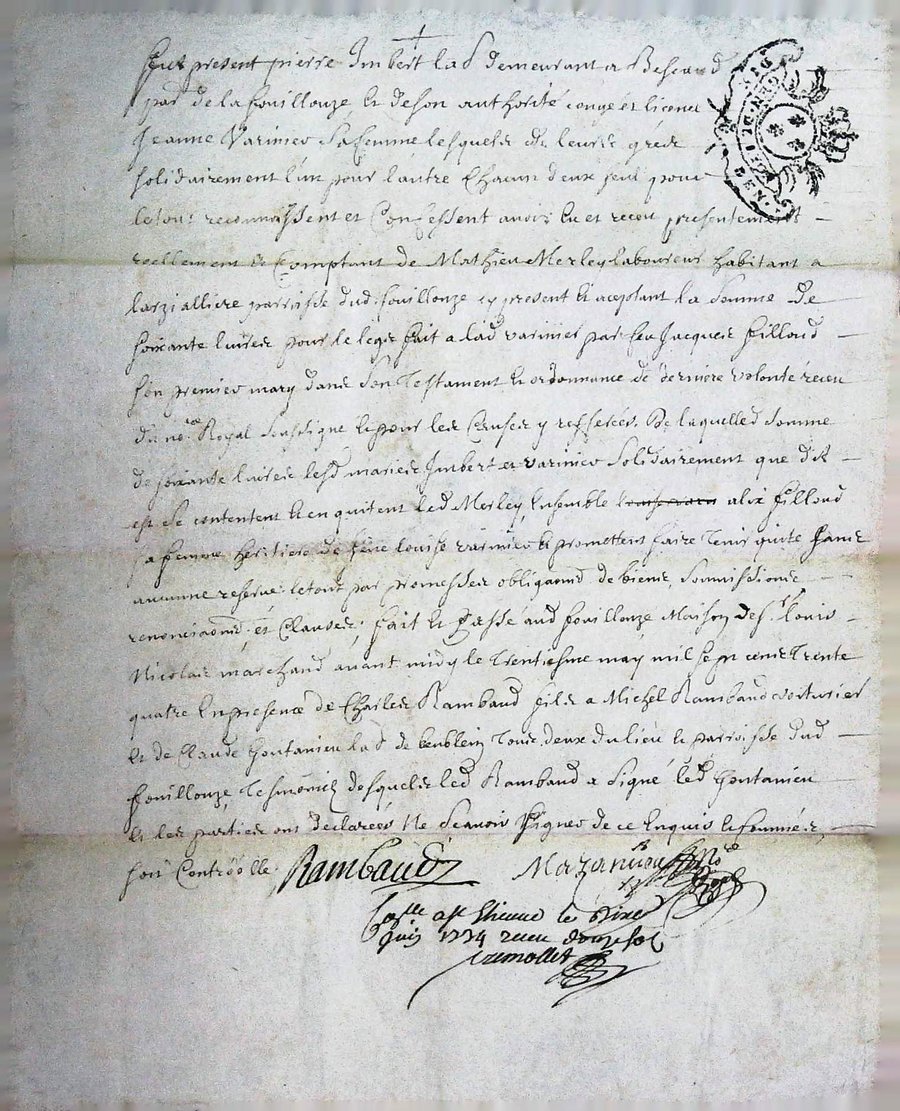 Fut present pierre Imbert lab.r demeurant a
par de la fouillouze, et de son authorité conge et licence
Jeanne Varinier sa femme, lesquels de leurs grés
solidairement l'un pour l'autre Chacun d'eux seul pour
le tout reconnoissent et Confessent avoir eu et receu presentement
reellement et Comptant de Mathieu Merley laboureur habitant a
parroisse dud. fouillouze cy present et aceptant la somme de
soixante livres pour le legs fait a lad varinier par feu Jacques filloud
son premier mary dans son Testament et ordonnance de derniere volonte receu
du no.re Royal soussigné et pour les Causes y refferées. De laquelle d somme
de soixante livres lesd mariés Imbert et varinier solidairement que dit
est se contentent et en quitent led Merley, ensemble alix filloud
sa femme heritiere de louise varinier et promettent faire tenir quite sans
aucunne reserve. le tout par promesses obligaōns de biens, soumissions
renonciaōns, et Clauses, fait et Passé aud fouillouze Maison de s.r louis
Nicolas marchand avant midy le Trentiesme may mil sept cens Trente
quatre En presence de Charles Rambaud fils a Michel Rambaud voiturier
et de Claude goutanieu lab.r de Tous deux du lieu et parroisse dud
fouillouze, Tesmoins desquels led Rambaud a signé led goutanieu
et les parties ont declarées Ne scavoir signer de ce Enquis et sommés,
soit Controolle. Rambaud
a st Etienne le
juin 1734 receu douze sol